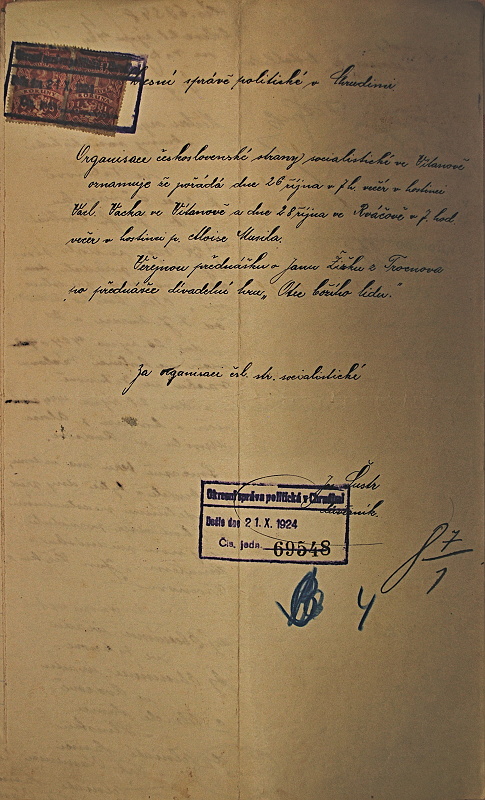 Okresní správě politické v Chrudimi
Organisace československé strany socialistické ve Vítanově
oznamuje že pořádá dne 26 října v 7 h. večer v hostinci
Václ. Vacka ve Vítanově a dne 28 října ve Rváčově v 7. hod
večer v hostinci p. Aloise Musila.
Veřejnou přednášku o Janu Žižku z Trocnova
po přednášce divadelní hru „Otec božího lidu."
Za organisaci čsl. str. socialistické
Šustr
důvěrník.
Okresní správa politická v Chrudimi
Došlo dne 21. X. 1924
Čís. jedn. 69548
4
7
1